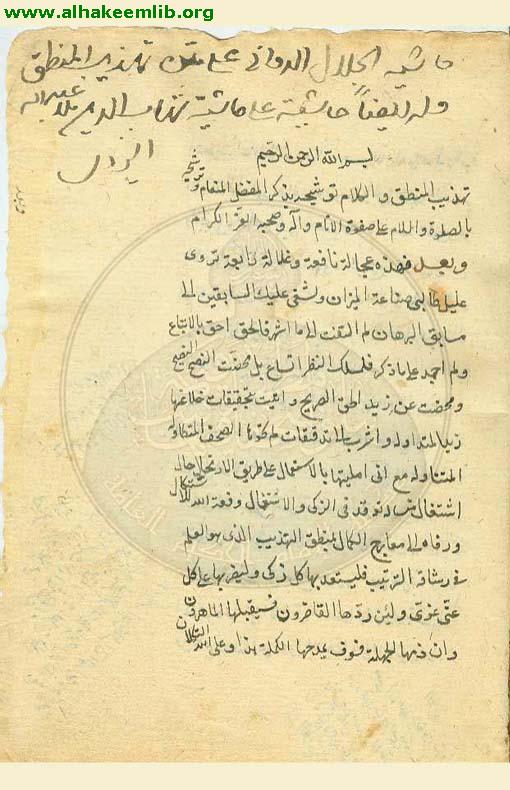 www.alhakeemlib.org
حاشية الجلال الدواني على متن تهذيب المنطق
وله ايضاً حاشية على حاشية شهاب الدين
اليزدي
بسم الله الرحمن الرحيم
تهذيب المنطق و الكلام توشيحه بذكر المفضل المنعام وترشيحه
بالصلوة والسلام على صفوة الانام وآله وصحبه الغر الكرام
وبعد فهذه عجالة نافعة وغلالة تروى
غليل طالبي صناعة الميزان ولتشفى عليك السابقين الى
مسابق البرهان لم التفت الى ما اشتهر فالحق احق بالاتباع
ولم اجمد على ما ذكر فلمسلك النظر اتساع بل محضت النصح النصيح
ومحضت عن زبد الحق الصريح واتيت بتحقيقات خلا عنها
زبر المتداوله واشرت الى تدقيقات لم تحوها الصحف
المتناوله مع انى امليتها بالاستعجال على طريق الارتجال حال
اشتغال بالى
ورقاه الى معارج الكمال بمنطق التهذيب الذي هو العلم
فى رشاقة الترتيب فليستعد بها كل زكى وليضن بها على كل
غبى غوى ولئن ردها القاصرون فسيقبلها الماهرون
وان ذمها الجهلة فسوف يمدحها الكملة هذا وعلى الله التكلان